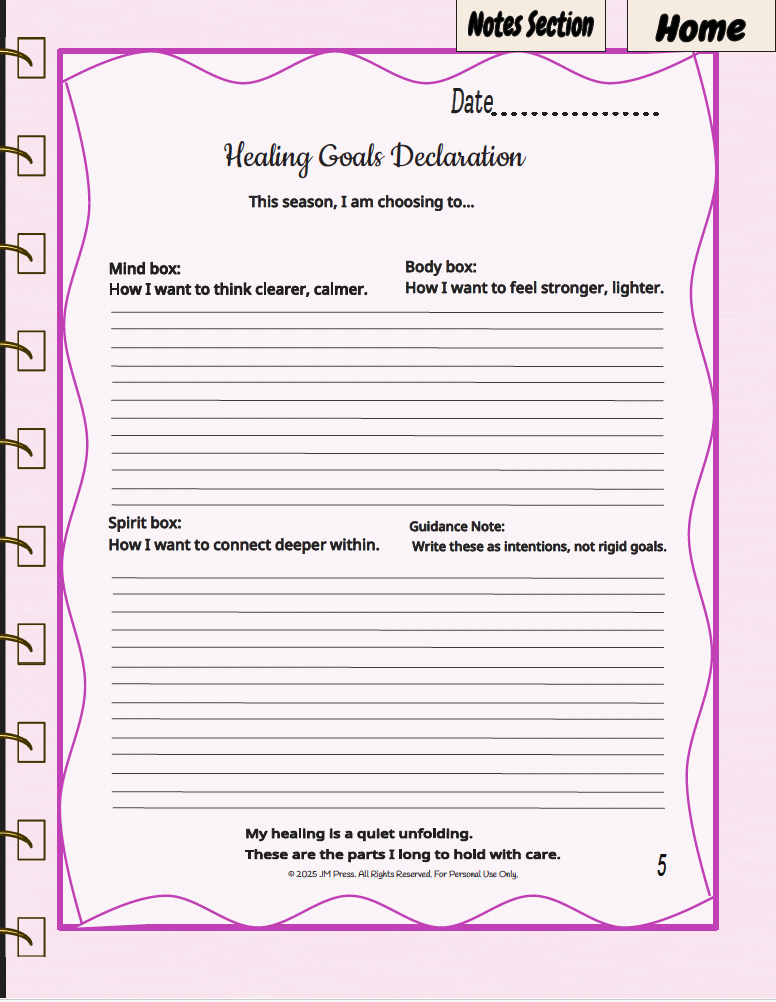 Notes Section
Home
Date.................
Healing Goals Declaration
This season, I am choosing to...
Mind box:
How I want to think clearer, calmer.
Body box:
How I want to feel stronger, lighter.
Spirit box:
How I want to connect deeper within.
Guidance Note:
Write these as intentions, not rigid goals.
My healing is a quiet unfolding.
These are the parts I long to hold with care.
© 2025 JM Press. All Rights Reserved. For Personal Use Only.
5